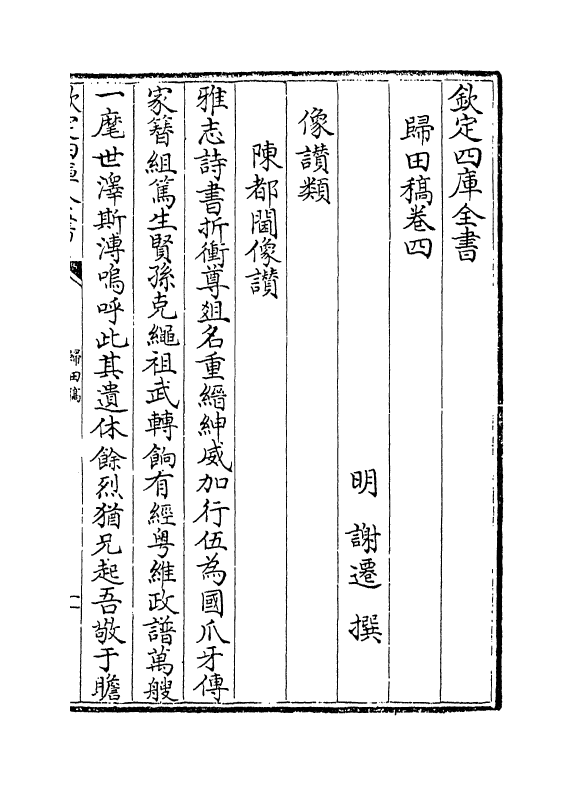 欽定四庫全書
歸田稿卷四
明 謝遷 撰
像讃類
陳都閫像讃
雅志詩書折衝尊俎名重縉紳威加行伍為國爪牙傳
家簪組篤生賢孫克繩祖武轉餉有經粤維政譜萬艘
一麾世澤斯溥嗚呼此其遺休餘烈猶兄起吾敬于瞻
欽定四庫全書
歸田稿
一